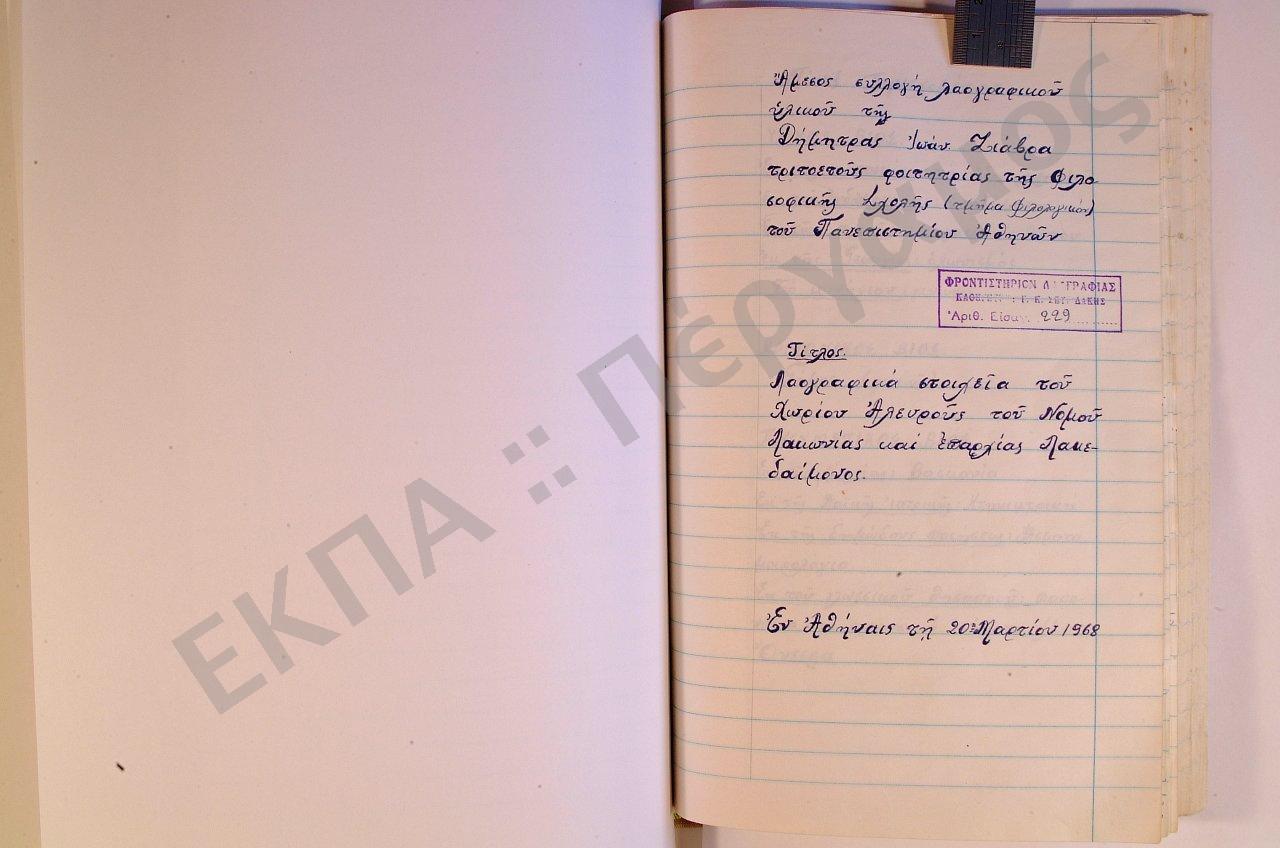 Ἄμεσος συλλογή λαογραφικοῦ
ὑλικοῦ τῆς
Δήμητρας Ἰωάν. Ζιάβρα
τριτοετοῦς φοιτητρίας τῆς Φιλο
σοφικῆς Σχολῆς (τμῆμα Φιλολογικόν)
τοῦ Πανεπιστημίου Ἀθηνῶν
ΦΡΟΝΤΙΣΤΗΡΙΟΝ ΛΑΟΓΡΑΦΙΑΣ
Ἀριθ. Εἰσαγ. 229
Τίτλος.
Λαογραφικά στοιχεῖα τοῦ
Χωρίου Ἀλευροῦς τοῦ Νομοῦ
Λακωνίας καί ἐπαρχίας Λακε-
δαίμονος.
Ἐν Ἀθήναις τῇ 20ῃ Μαρτίου 1968
ΕΚΠΑ :: Πέργαμος